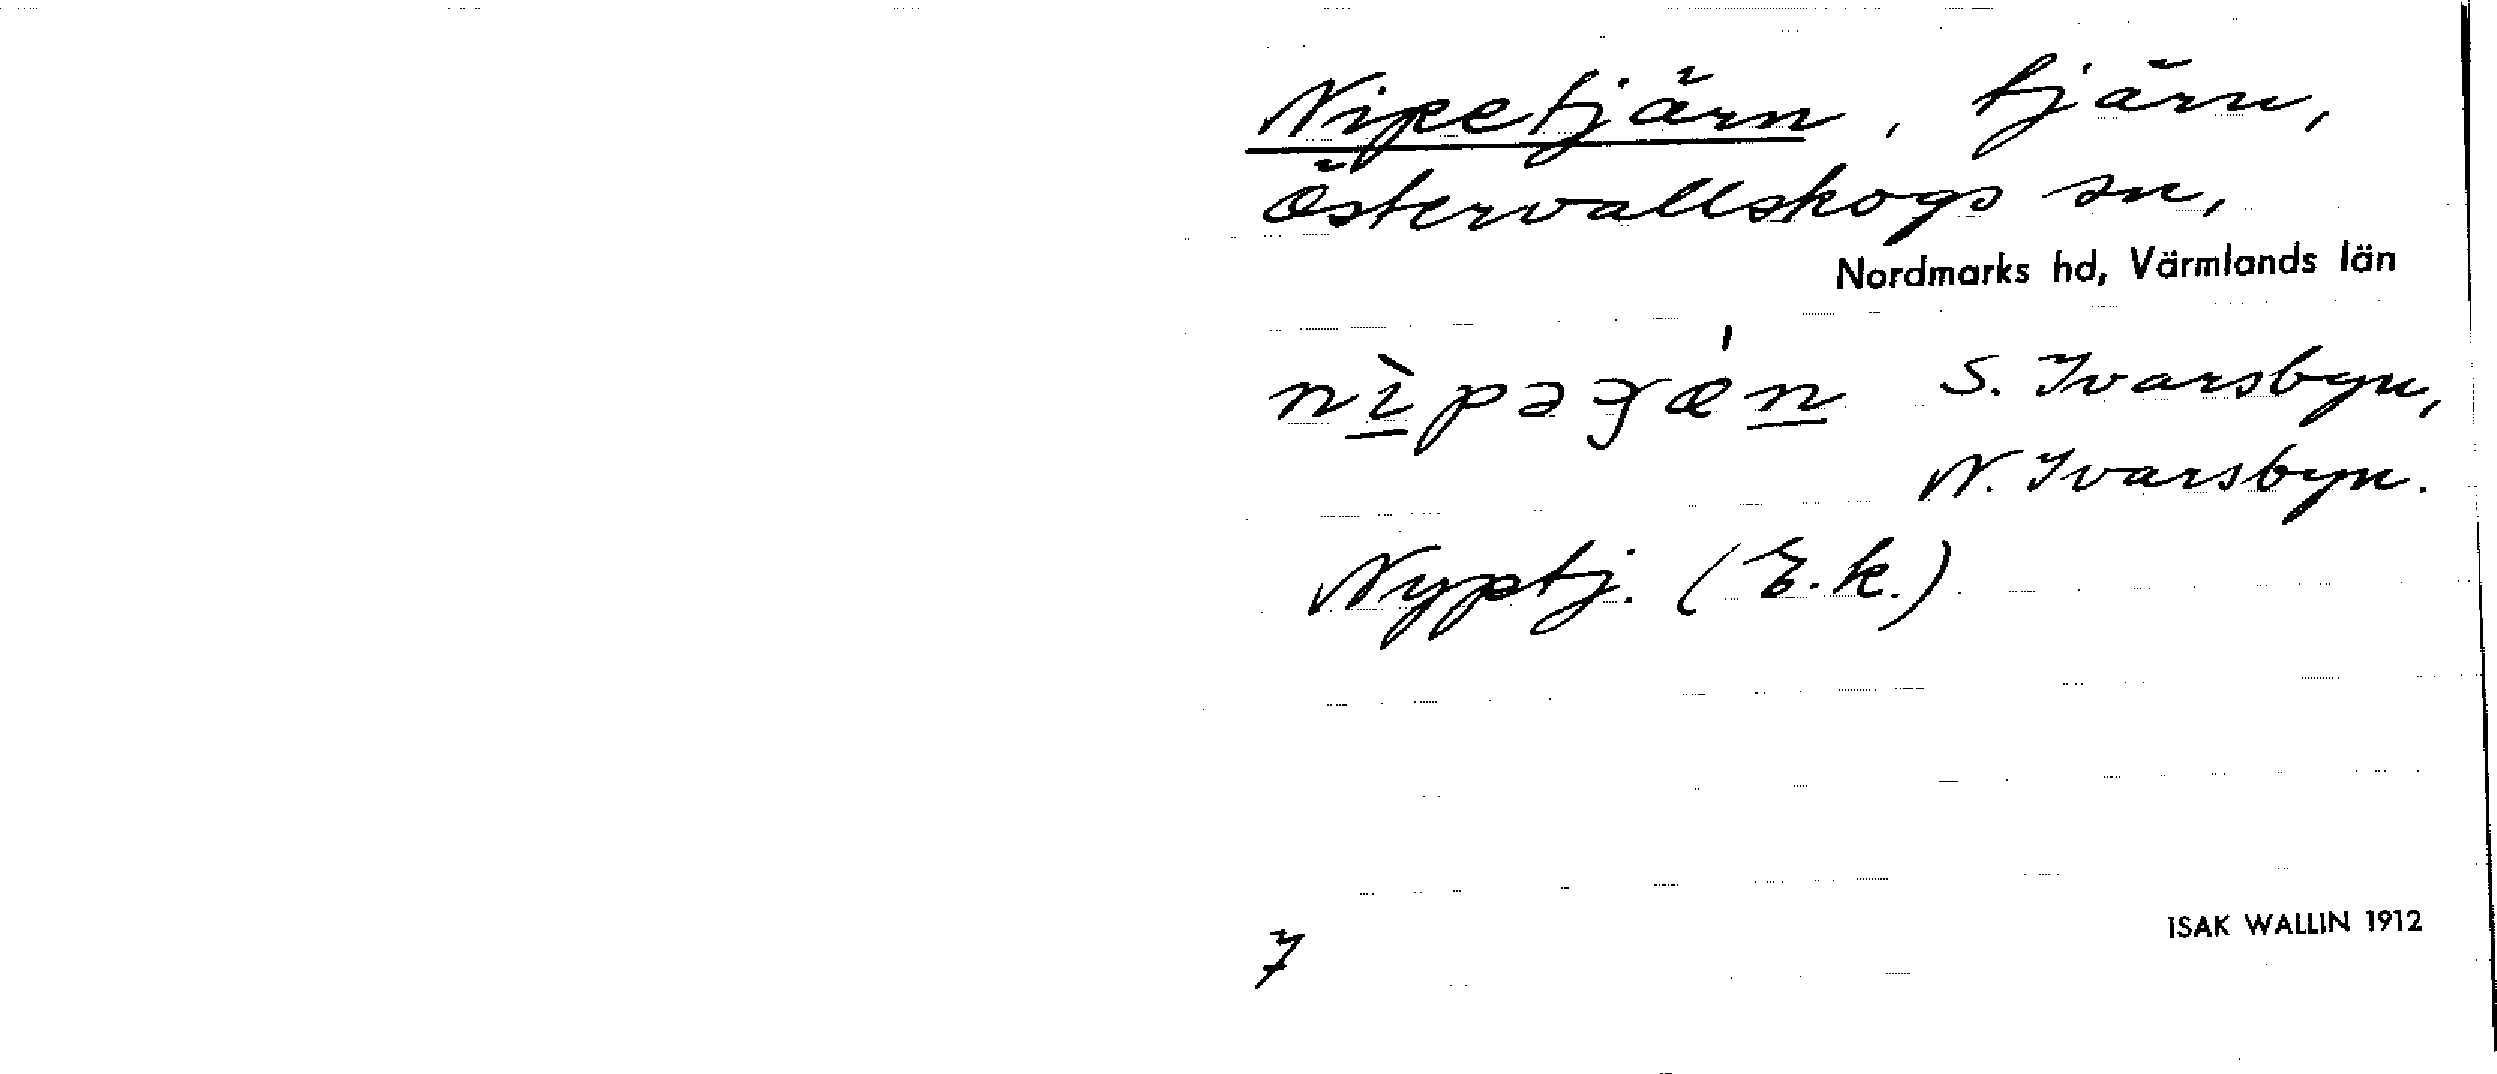 Nipetjärn, tjärn,
Östervallskogs sn,
Nordmarks hd, Värmlands län
S. Ivarsbyn,
N. Ivarsbyn.
Nyptj. (E.k.)
ISAK WALLIN 1912
7